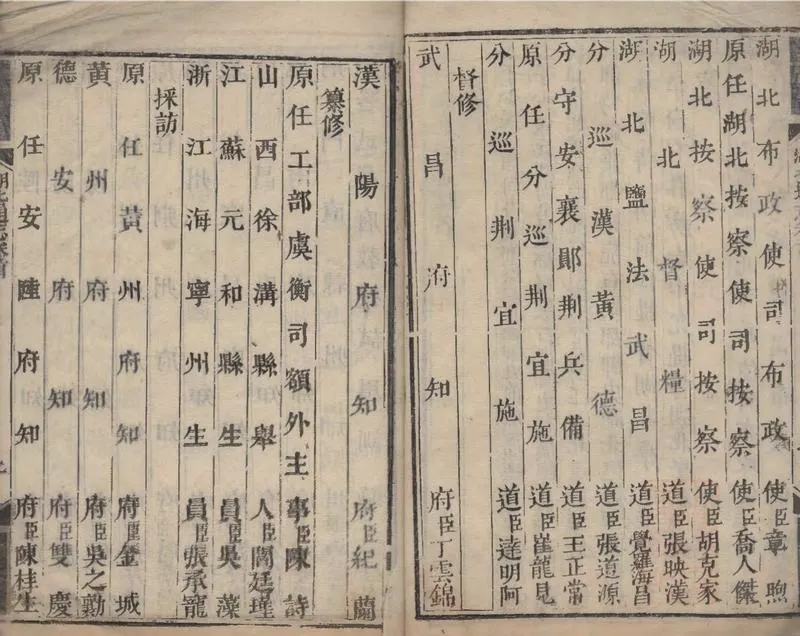 湖北布政使司布政使臣章煦
原任湖北按察使司按察使臣喬人傑
湖北按察使司按察使臣胡克家
湖北督糧道臣張映漢
湖北鹽法武昌道臣覺羅海昌
分巡漢黃德道臣張道源
分守安襄鄖荆兵備道臣王正常
原任分巡荆宜施道臣崔龍見
分巡荆宜施道臣達明阿
督修
武昌府知府臣丁雲錦
漢陽府知府臣紀蘭
纂修
原任工部虞衡司額外主事臣陳詩
山西徐溝縣舉人臣閻廷瑾
江蘇元和縣生員臣吳藻
浙江海寧州生員臣張承寵
採訪
原任黃州府知府臣金城
黃州府知府臣吳之勷
德安府知府臣雙慶
原任安陸府知府臣陳桂生